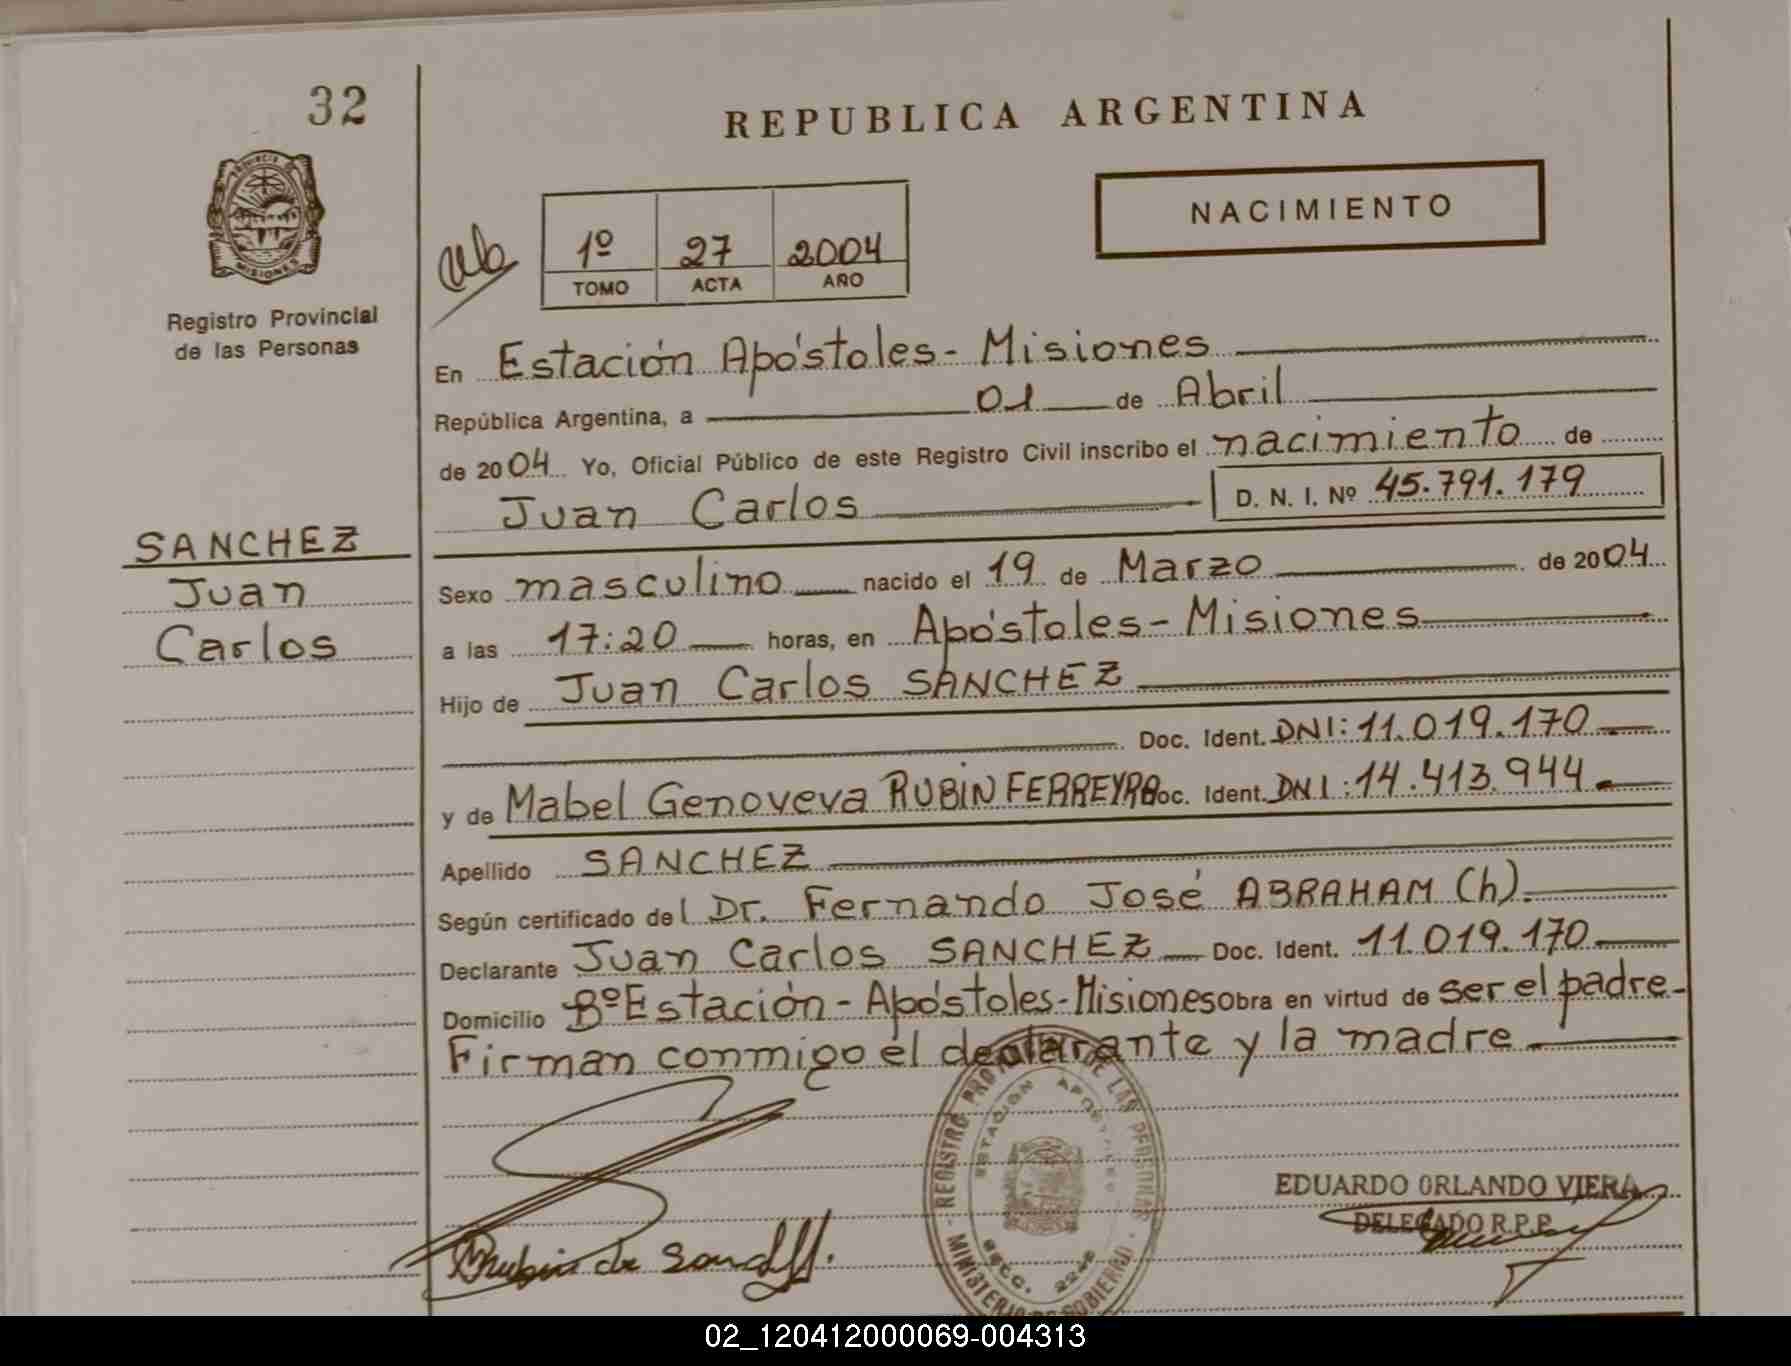 32
REPUBLICA ARGENTINA
NACIMIENTO
1º 27 2004
TOMO ACTA AÑO
MISIONES
Registro Provincial
de las Personas
En Estación Apóstoles - Misiones
República Argentina, a 01 de Abril
de 2004 Yo, Oficial Público de este Registro Civil inscribo el nacimiento de
Juan Carlos D. N. I. Nº 45.791.179
SANCHEZ
Juan
Carlos
Sexo masculino nacido el 19 de Marzo de 2004
a las 17:20 horas, en Apóstoles - Misiones
Hijo de Juan Carlos SANCHEZ
Doc. Ident. DNI: 11.019.170
y de Mabel Genoveva RUBIN FERREYRA Doc. Ident. DNI: 14.413.944
Apellido SANCHEZ
Según certificado del Dr. Fernando José ABRAHAM (h).
Declarante Juan Carlos SANCHEZ Doc. Ident. 11.019.170
Domicilio Bº Estación - Apóstoles - Misiones obra en virtud de ser el padre-
Firman conmigo el declarante y la madre
REGISTRO PROV DE LAS PERSONAS
ESTACION APOSTOLES
SECC. 2248
MINISTERIO DE GOBIERNO
EDUARDO ORLANDO VIERA
DELEGADO R.P.P.
02_120412000069-004313